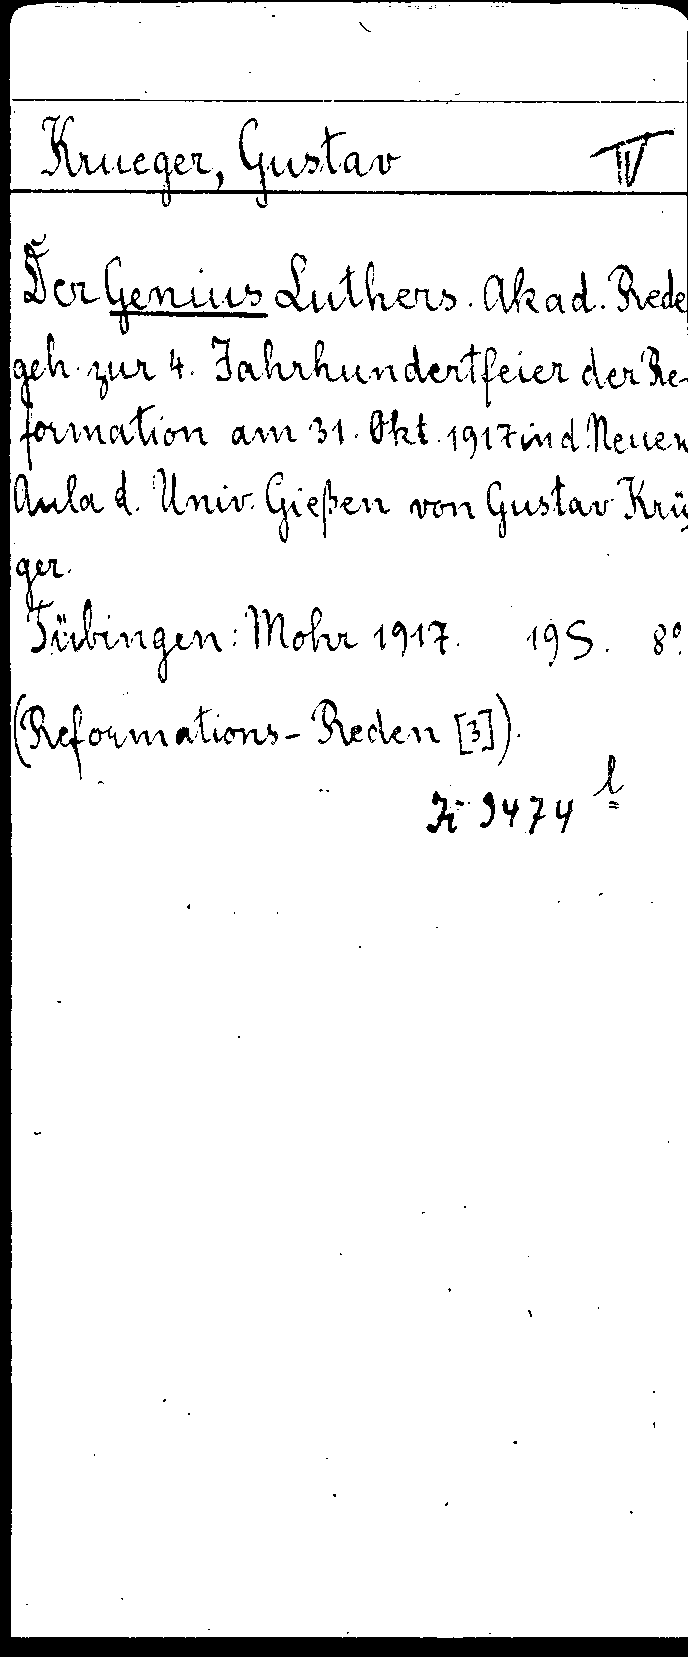 Krueger, Gustav IV
Der Genius Luthers. Akad. Rede
geh. zur 4. Jahrhundertfeier der Re-
formation am 31. Okt. 1917 in d. Neuen
Aula d. Univ. Gießen von Gustav Krü
ger.
Tübingen: Mohr 1917. 19 S. 8°.
(Reformations-Reden [3]).
9474 l